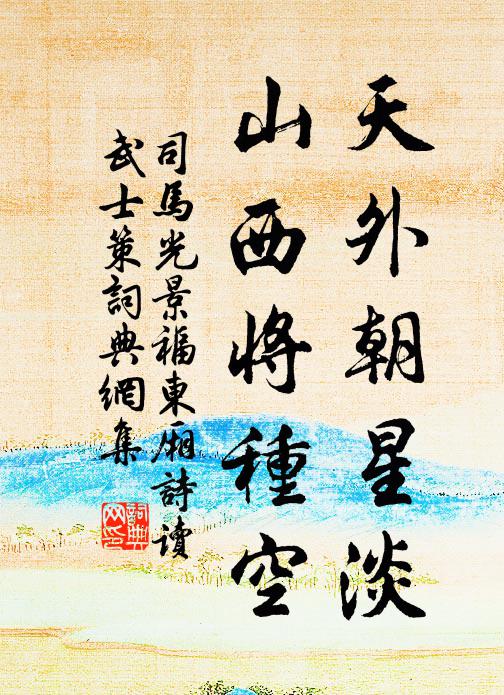 天外朝星淡
山西將種空
司馬光景福東廂詩讀
武士策詞典網集
詞典網印